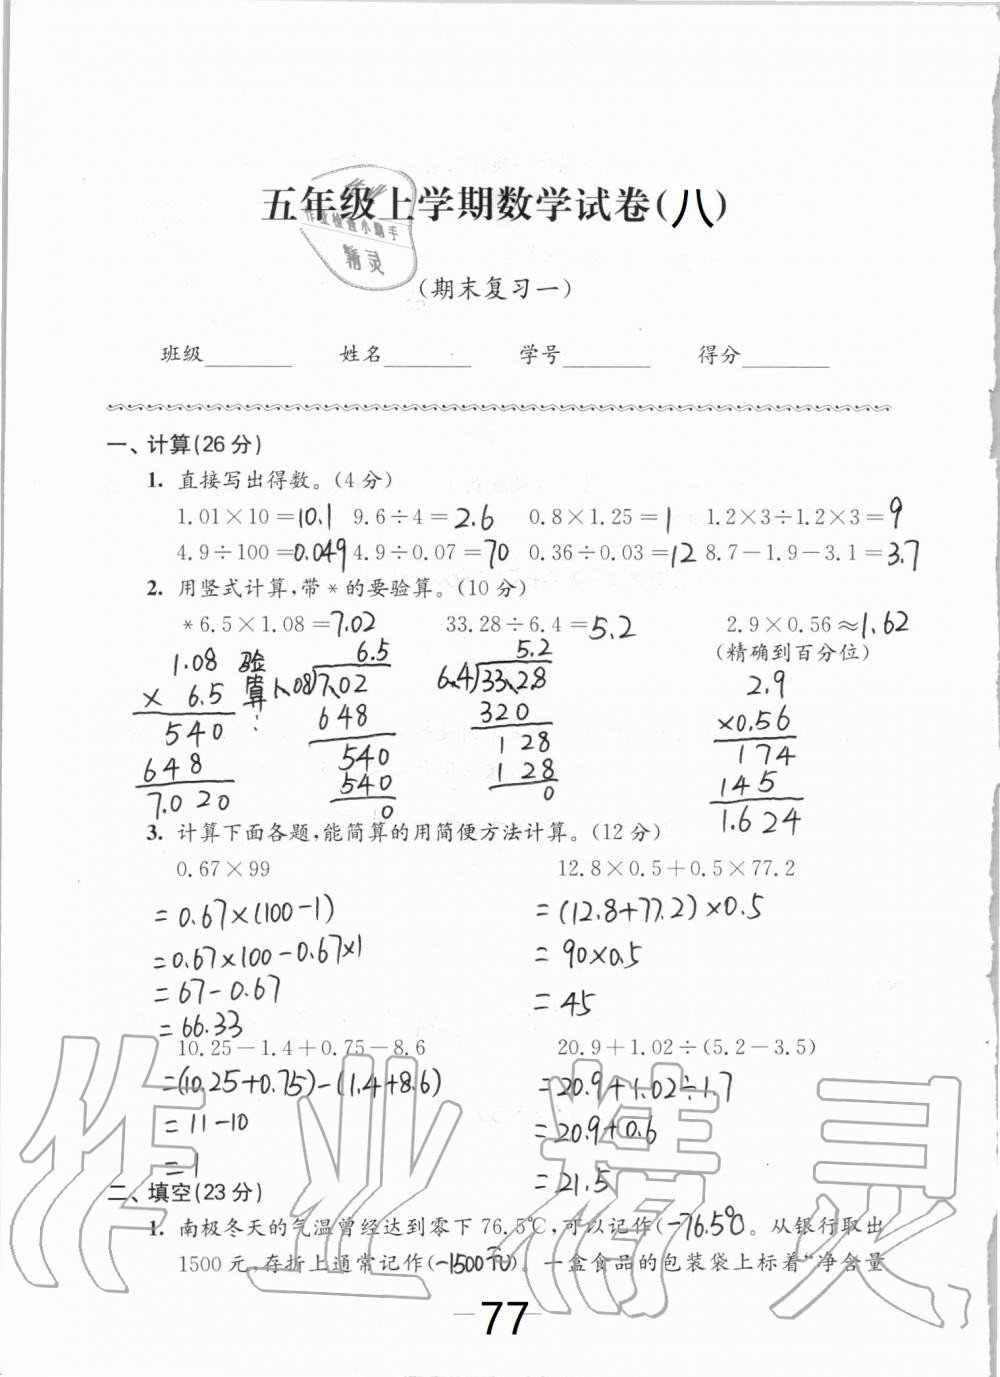 五年级上学期数学试卷(八)
作业检查小助手
精灵
(期末复习一)
班级 姓名 学号 得分
一、计算(26分)
1. 直接写出得数。(4分)
1.01×10=10.1 9.6÷4=2.6 0.8×1.25=1 1.2×3÷1.2×3=9
4.9÷100=0.049 4.9÷0.07=70 0.36÷0.03=12 8.7-1.9-3.1=3.7
2. 用竖式计算,带*的要验算。(10分)
*6.5×1.08=7.02 33.28÷6.4=5.2 2.9×0.56≈1.62
(精确到百分位)
1.08
× 6.5
540
648
7.020
验算:
6.5
1.08 7.02
648
540
540
0
5.2
6.4 33.28
320
128
128
0
2.9
×0.56
174
145
1.624
3. 计算下面各题,能简算的用简便方法计算。(12分)
0.67×99 12.8×0.5+0.5×77.2
=0.67×(100-1) =(12.8+77.2)×0.5
=0.67×100-0.67×1 =90×0.5
=67-0.67 =45
=66.33
10.25-1.4+0.75-8.6 20.9+1.02÷(5.2-3.5)
=(10.25+0.75)-(1.4+8.6) =20.9+1.02÷1.7
=11-10 =20.9+0.6
=1 =21.5
二、填空(23分)
1. 南极冬天的气温曾经达到零下76.5℃,可以记作(-76.5℃)。从银行取出
1500元,存折上通常记作(-1500元)。一盒食品的包装袋上标着“净含量
77
作业精灵